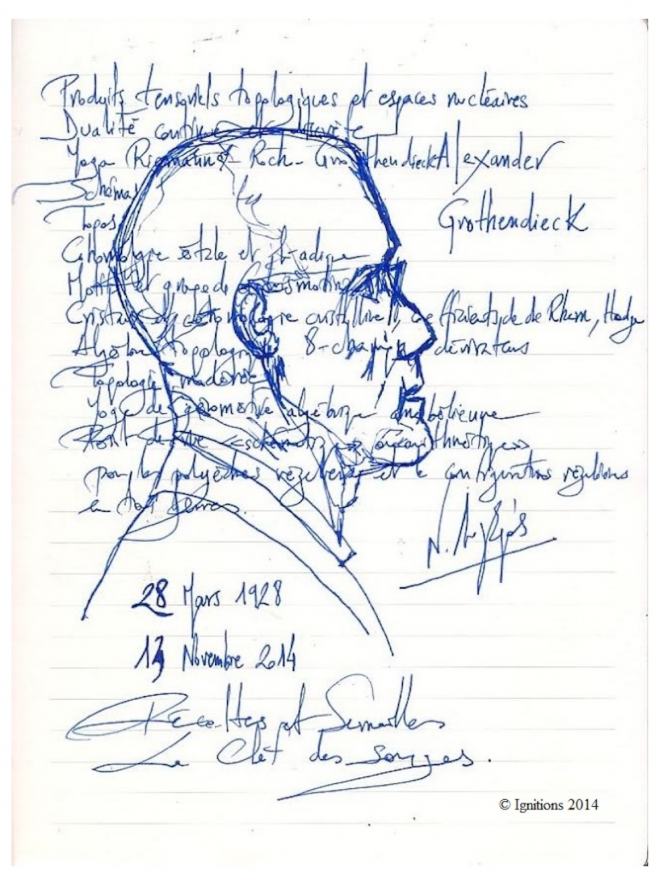 Produits tensoriels topologiques et espaces nucléaires
Dualité continue et discrète
Yoga Riemann-Roch-Grothendieck Alexander
Schémas
Grothendieck
Topos
Cohomologie étale et l-adique
Motifs et groupe de
Cristaux et cohomologie cristalline, de Rham, Hodge
Algèbre topologique dérivateurs
Topologie modérée
Yoga de géométrie algébrique anabélienne
pour les polyèdres réguliers et configurations régulières
en tous genres.
28 Mars 1928
13 Novembre 2014
Récoltes et Semailles
La Clef des Songes.
© Ignitions 2014